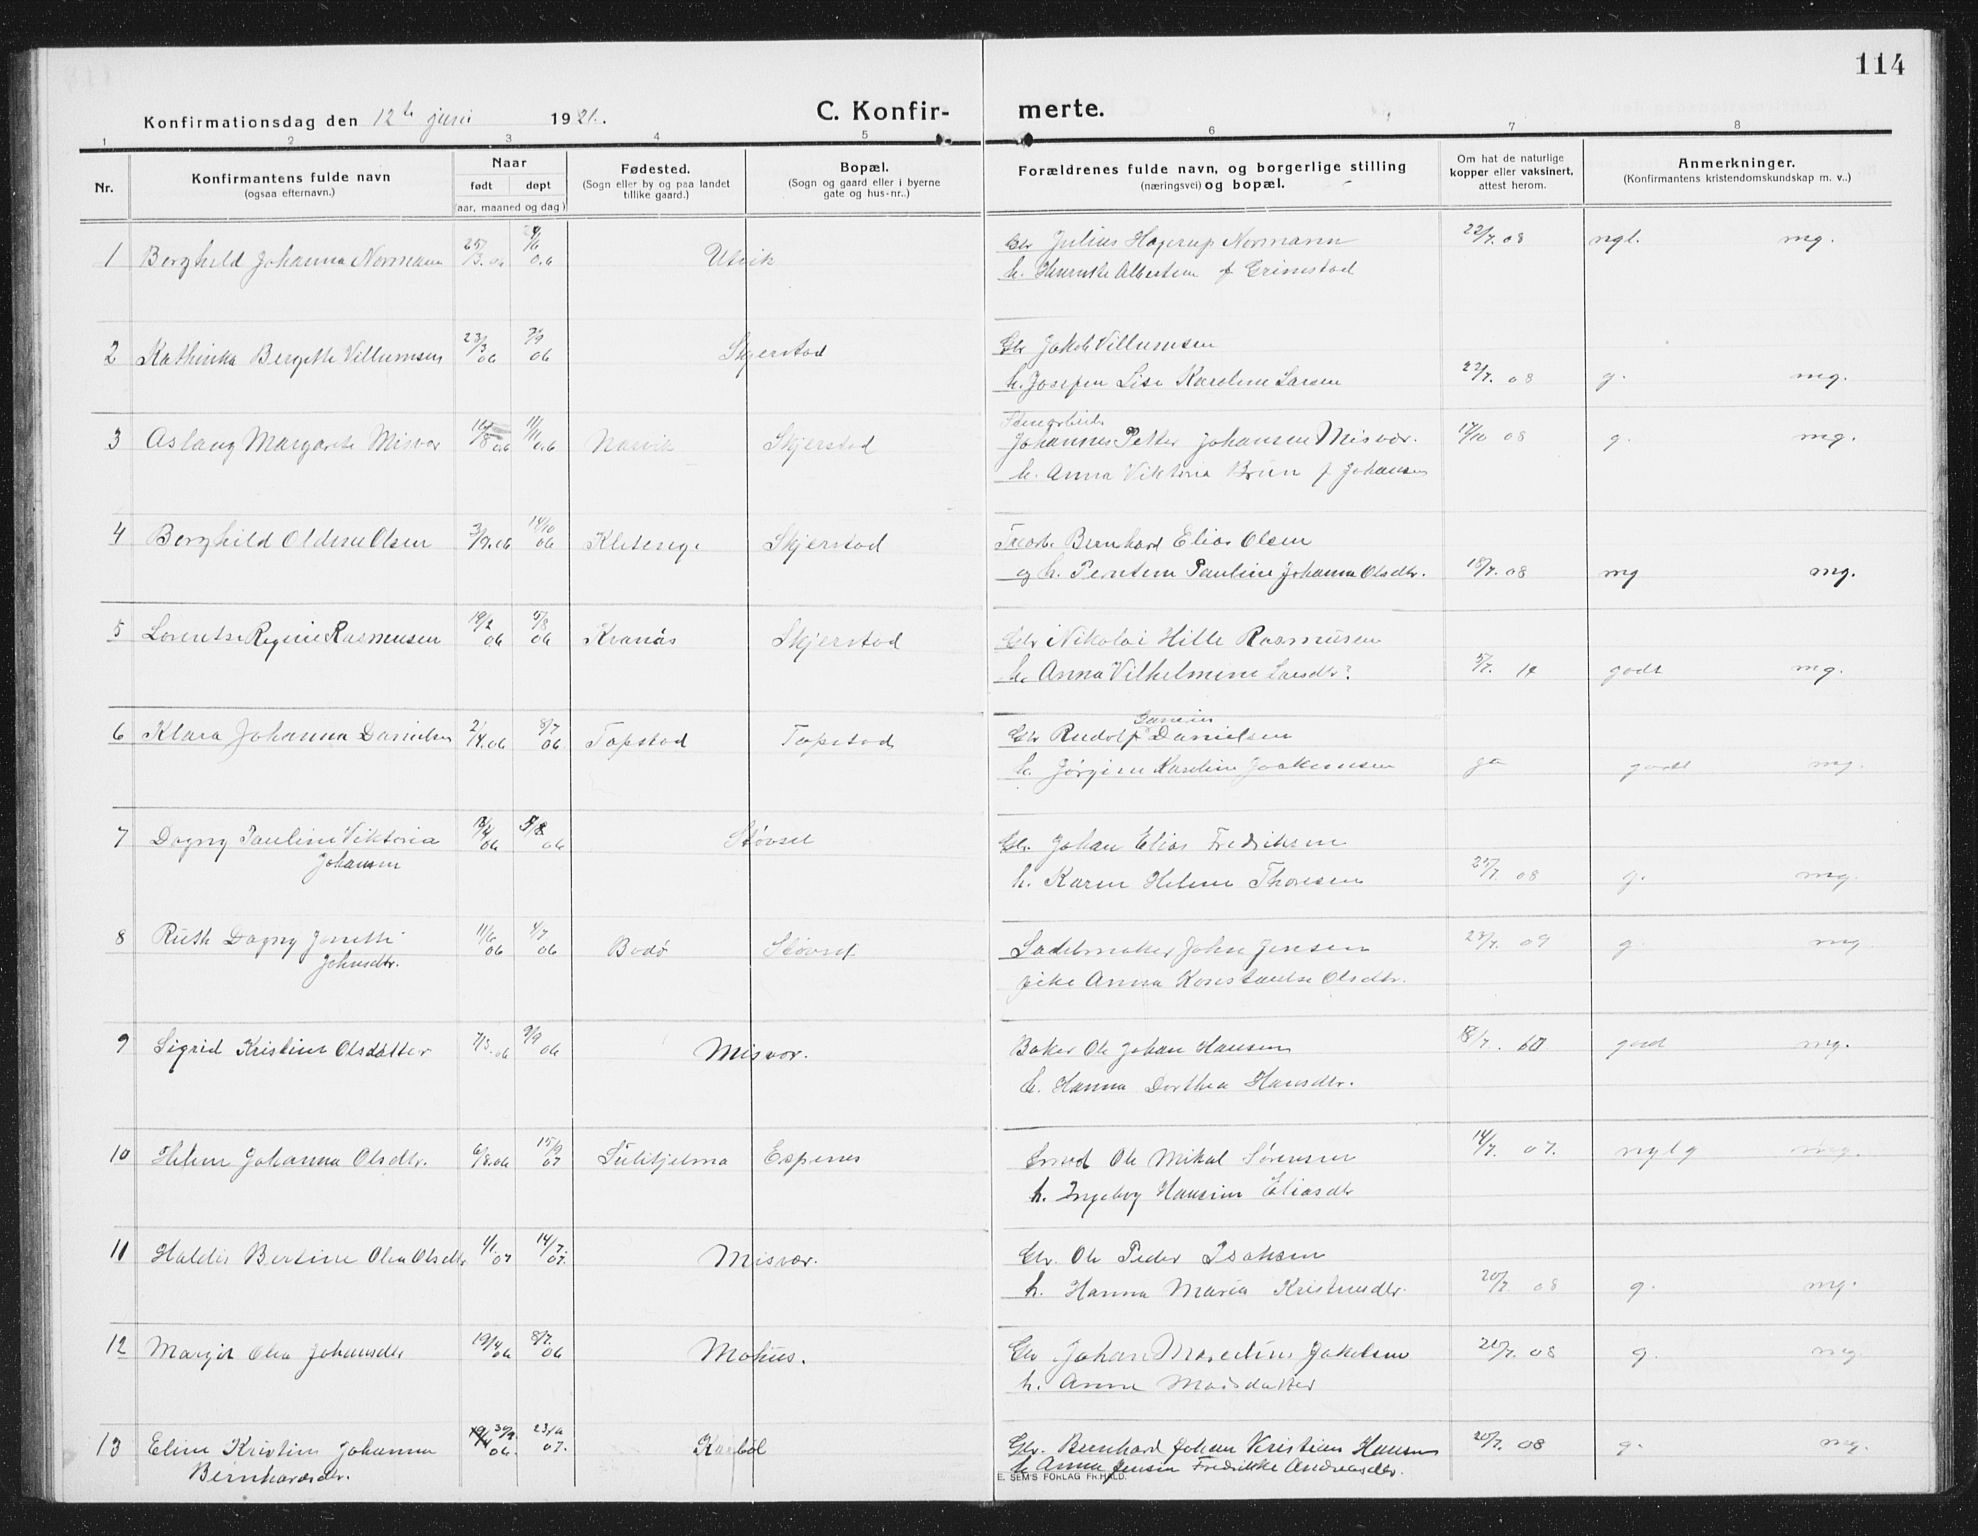 114
Konfirmationsdag den 12te juni 1921.
C. Konfirmerte.
1 2 3 4 5 6 7 8
Nr.
Konfirmantens fulde navn (ogsaa efternavn.)
Naar født døpt (aar, maaned og dag)
Fødested. (Sogn eller by og paa landet tillike gaard.)
Bopæl. (Sogn og gaard eller i byerne gate og hus-nr..)
Forældrenes fulde navn, og borgerlige stilling (næringsvei) og bopæl.
Om hat de naturlige kopper eller vaksinert, attest herom.
Anmerkninger. (Konfirmantens kristendomskundskap m. v..)
1 Borghild Johanna Normann Utvik Gbr Julius Hagerup Normann 22/7. 08 ngl. mg.
h. Albertine f Grimstad
2 Kathinka Bergette Villumsen 23/3 06 06 Skjerstad Gbr Jakob Villumsen
h. Josefen Lise Karoline Larsen 22/7. 08 g. mg.
Stenarbeider
3 Aslaug Margarete Misvær 8 06 11/11 06 Narvik Skjerstad Johannes Petter Johansen Misvær. 08 g. mg.
h. Anna Viktoria Brun f Johansen
4 Borghild Oldine Olsen 3/9. 06 14/10 06 Skjerstad Bernhard Elias Olsen
og h. Pauline Johanna Olsdtr. 18/7. 08 mg mg.
5 Lorentse Regine Rasmussen 19/2 06 5/8 06 Kvanås Skjerstad Gbr Nikolai Hille Rasmussen
h. Anna Vilhelmine Larsdtr? 5/7. 14 godt mg.
6 Klara Johanna Danielsen 06 8/7 06 Tapstad Tapstad Gbr Rudolf Danielsen
h. Jørgine Karoline Joakimsen ja godt mg.
7 Dagny Pauline Viktoria 06 5/8. 06 Støvset Gbr. Johan Elias Fredriksen
Johansen h. Karen Helene Thoresen 25/7. 08 g. mg.
8 Ruth Dagny Jonette 11/6 06 4/7 06 Bodø Støvset Sadelmaker John Jensen 23/7. 09 g. mg
Johnsdtr. pike Anna Konstanse Olsdtr.
9 Sigrid Kristine Olsdatter 7/3. 06 9/9 06 Misvær. Baker Ole Johan Hansen 18/7. godt mg.
h. Hanna Dorthea Hansdtr.
10 Helene Johanna Olsdtr. 6/8. 06 15/9 07 Sulitjelma Espenes Ole Mikal Sørensen 14/7. 07. nglg mg.
h. Ingeborg Hansine Eliasdtr
11 Haldis Bertine Olea Olsdtr 1/1. 07 14/7. 07. Misvær. Gbr. Ole Peder Isaksen
h. Hanna Maria Kristensdtr. 20/7. 08 g. mg.
12 Margit Olea Johansdtr 19/4 06 8/7. 06 Mohus. Gbr Johan Marelius Jakobsen 20/7. 08 g. mg.
h. Anne Madsdatter
13 Eline Kristine Johanna 06. 07. Karbøl Gbr. Bernhard Johan Kristian Hansen 20/7. 08 g. mg.
Bernhardsdtr. h. Anna Jensine Fredrikke Andreasdtr.
E. SEM'S FORLAG FR.HALD.